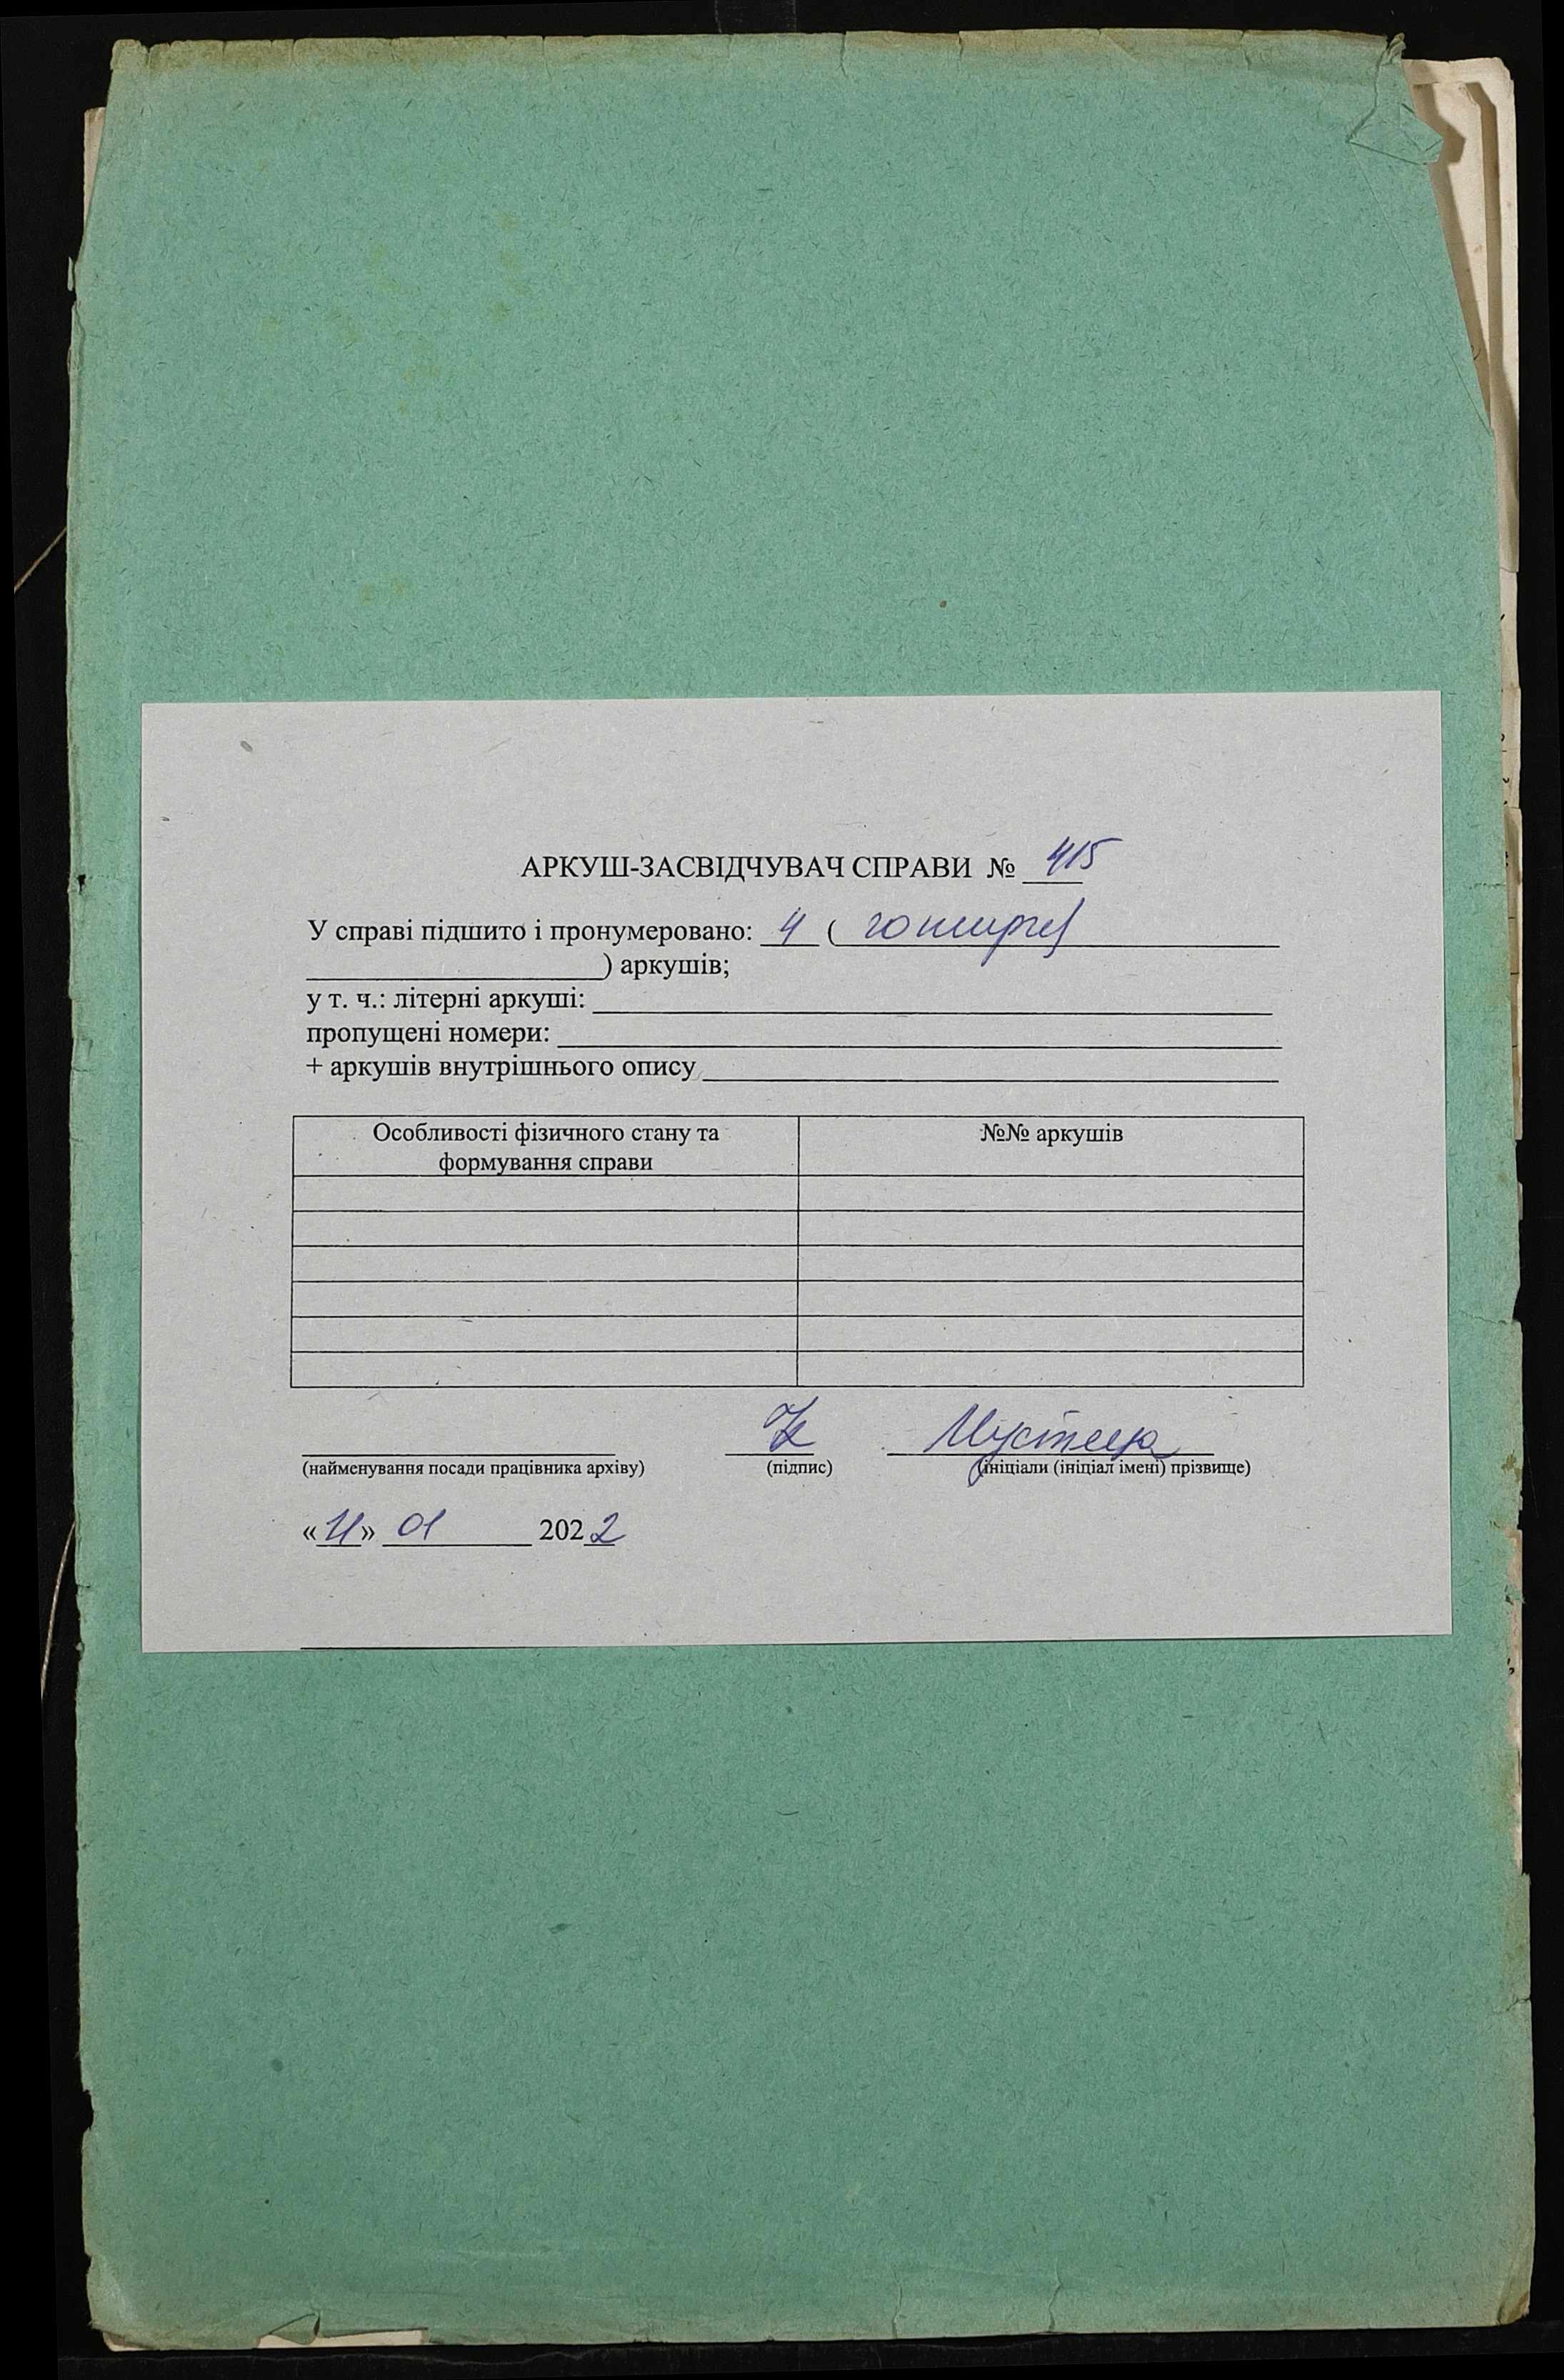 АРКУШ-ЗАСВІДЧУВАЧ СПРАВИ № 415
У справі підшито і пронумеровано: 4 ( чотири)
) аркушів;
у т. ч.: літерні аркуші:
пропущені номери:
+ аркушів внутрішнього опису
Особливості фізичного стану та
формування справи
№№ аркушів
(найменування посади працівника архіву) (підпис) (ініціали (ініціал імені) прізвище)
« » 01 2022